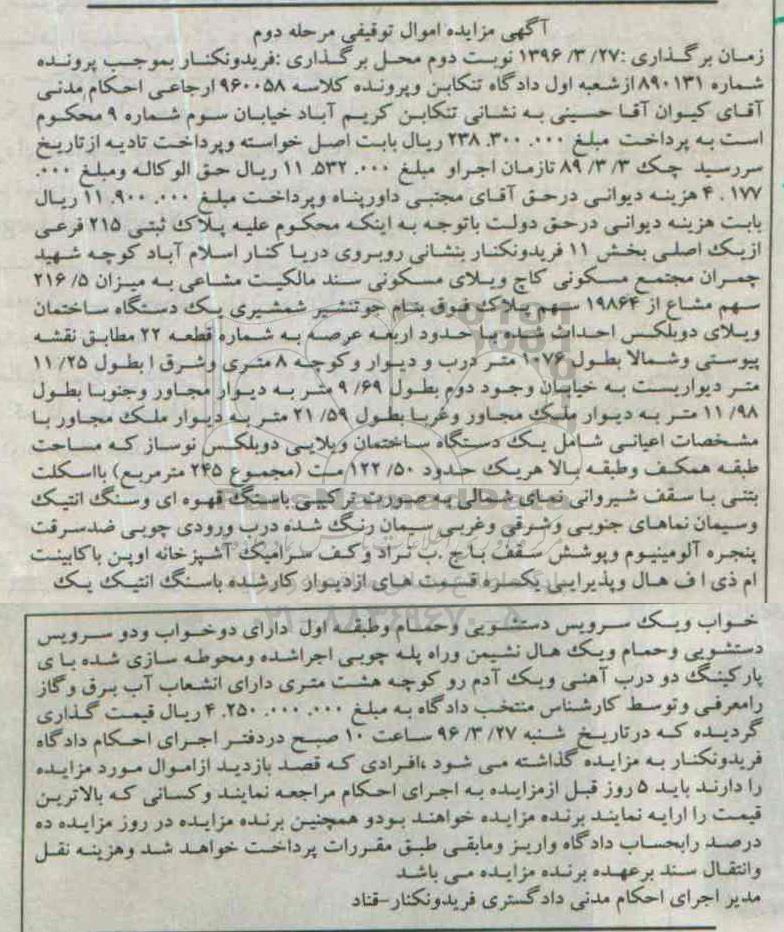 آگهی مزایده اموال توقیفی مرحله دوم
زمان برگذاری :۲۷/ ۳/ ۱۳۹۶ نوبت دوم محل برگذاری :فریدونکنار بموجب پرونده
شماره ۸۹۰۱۳۱ ازشعبه اول دادگاه تنکابن وپرونده کلاسه ۹۶۰۰۵۸ ارجاعی احکام مدنی
آقای کیوان آقا حسینی به نشانی تنکابن کریم آباد خیابان سوم شماره ۹ محکوم
است به پرداخت مبلغ ۲۳۸.۳۰۰.۰۰۰ ریال بابت اصل خواسته وپرداخت تادیه ازتاریخ
سررسید چک ۳/ ۳/ ۸۹ تازمان اجراو مبلغ ۱۱.۵۳۲.۰۰۰ ریال حق الوکاله ومبلغ ۰۰۰.
۴.۱۷۷ هزینه دیوانی درحق آقای مجتبی داورپناه وپرداخت مبلغ ۱۱.۹۰۰.۰۰۰ ریال
بابت هزینه دیوانی درحق دولت باتوجه به اینکه محکوم علیه پلاک ثبتی ۲۱۵ فرعی
ازیک اصلی بخش ۱۱ فریدونکنار بنشانی روبروی دریا کنار اسلام آباد کوچه شهید
چمران مجتمع مسکونی کاج ویلای مسکونی سند مالکیت مشاعی به میزان ۵/ ۲۱۶
سهم مشاع از ۱۹۸۶۴ سهم پلاک فوق بنام جوتنشیر شمشیری یک دستگاه ساختمان
ویلای دوبلکس احداث شده با حدود اربعه عرصه به شماره قطعه ۲۲ مطابق نقشه
پیوستی وشمالا بطول ۱۰۷۶ متر درب و دیوار وکوچه ۸ متری وشرق ا بطول ۱۱/۲۵
متر دیواریست به خیابان وجود دوم بطول ۹/۶۹ متر به دیوار مجاور وجنوبا بطول
۱۱/۹۸ متر به دیوار ملک مجاور وغربا بطول ۲۱/۵۹ متر به دیوار ملک مجاور با
مشخصات اعیانی شامل یک دستگاه ساختمان ویلایی دوبلکس نوساز که مساحت
طبقه همکف وطبقه بالا هریک حدود ۱۲۲/۵۰ مت (مجموع ۲۴۵ مترمربع) بااسکلت
بتنی با سقف شیروانی نمای شمالی به صورت ترکیبی باسنگ قهوه ای وسنگ انتیک
وسیمان نماهای جنوبی وشرقی وغربی سیمان رنگ شده درب ورودی چوبی ضدسرقت
پنجره آلومینیوم وپوشش سقف با ج .ب نراد وکف سرامیک آشپزخانه اوپن باکابینت
ام ذی ا ف هال وپذیرایی یکسره قسمت های ازدیوار کارشده باسنگ انتیک یک
خواب ویک سرویس دستشویی وحمام وطبقه اول دارای دوخواب ودو سرویس
دستشویی وحمام ویک هال نشیمن وراه پله چوبی اجراشده ومحوطه سازی شده با ی
پارکینگ دو درب آهنی ویک آدم رو کوچه هشت متری دارای انشعاب آب برق وگاز
رامعرفی وتوسط کارشناس منتخب دادگاه به مبلغ ۴.۲۵۰.۰۰۰.۰۰۰ ریال قیمت گذاری
گردیده که درتاریخ شنبه ۲۷/ ۳/ ۹۶ ساعت ۱۰ صبح دردفتر اجرای احکام دادگاه
فریدونکنار به مزایده گذاشته می شود ،افرادی که قصد بازدید ازاموال مورد مزایده
را دارند باید ۵ روز قبل ازمزایده به اجرای احکام مراجعه نمایند وکسانی که بالاترین
قیمت را ارایه نمایند برنده مزایده خواهند بودو همچنین برنده مزایده در روز مزایده ده
درصد رابحساب دادگاه واریز ومابقی طبق مقررات پرداخت خواهد شد وهزینه نقل
وانتقال سند برعهده برنده مزایده می باشد
مدیر اجرای احکام مدنی دادگستری فریدونکنار-قناد